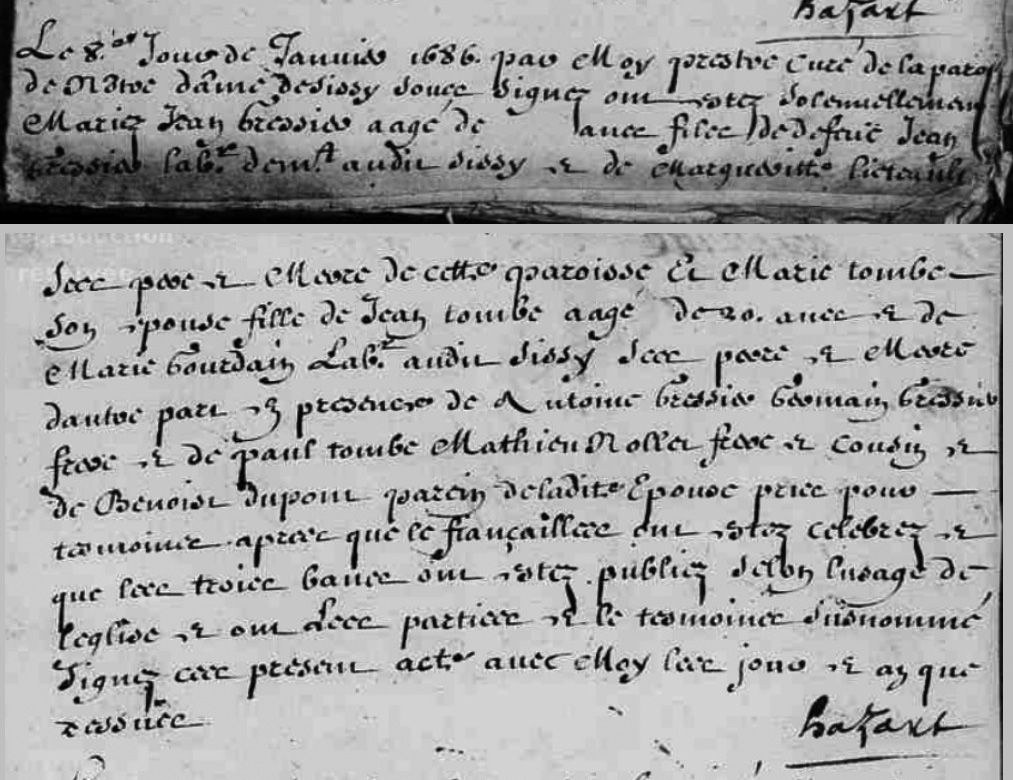 hazart
Le 8.e Jour de Janvier 1686. par Moy prestre Curé de la paroisse
de Nostre dame de Sissy soucs Signez ont estez solennellement
Mariez Jean bressier aagé de ans fils de defunt Jean
bressier lab.r dem.t audit Sissy et de Margueritte
sees pere et Mere de cette paroisse Et Marie tombe
son epouse fille de Jean tombe aagé de 20. ans et de
Marie Gourdain Lab.r audit Sissy sees pere et Mere
dautre part en presence de Antoine bressier Germain bressier
frere et de paul tombe Mathieu Nollet frere et Cousin et
de Benoist dupont parein de ladite Epouse priee pour
tesmoines aprees que le françaillees ont estez celebrez et
que lees troiee bancs ont estez publiez selon lusage de
leglise et ont lees partiees et le tesmoinee susnommé
Signez cee present acte avec Moy lees jour et an que
dessuee
hazart